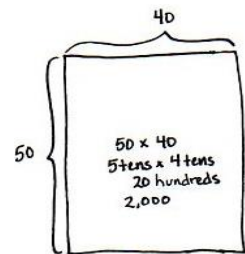 40
50
50 x 40
5 tens x 4 tens
20 hundreds
2,000